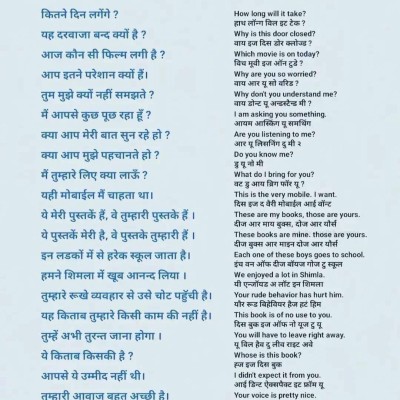 कितने दिन लगेंगे ?
How long will it take?
हाथ लॉन्ग विल इट टेक ?
यह दरवाजा बन्द क्यों है ?
Why is this door closed?
वाय इज दिस डोर क्लोज्ड ?
आज कौन सी फिल्म लगी है ?
Which movie is on today?
विच मूवी इज ऑन टुडे ?
आप इतने परेशान क्यों हैं।
Why are you so worried?
वाय आर यू सो वरिड ?
तुम मुझे क्यों नहीं समझते ?
Why don't you understand me?
वाय डोन्ट यू अन्डस्टैन्ड मी ?
मैं आपसे कुछ पूछ रहा हूँ ?
I am asking you something.
आयम आस्किंग यू समथिंग
क्या आप मेरी बात सुन रहे हो ?
Are you listening to me?
आर यू लिसनिंग टु मी २
क्या आप मुझे पहचानते हो ?
Do you know me?
डु यू नो मी
मैं तुम्हारे लिए क्या लाऊँ ?
What do I bring for you?
वट डु आय ब्रिंग फॉर यू ?
यही मोबाईल मैं चाहता था।
This is the very mobile. I want.
दिस इज द वैरी मोबाईल आई वॉन्ट
ये मेरी पुस्तकें हैं, वे तुम्हारी पुस्तके हैं ।
These are my books, those are yours.
दीज आर माय बुक्स, दोज आर यौर्स
ये पुस्तकें मेरी है, वे पुस्तके तुम्हारी हैं ।
These books are mine. those are yours.
दीज बुक्स आर माइन दोज आर यौर्स
इन लडकों में से हरेक स्कूल जाता है।
Each one of these boys goes to school.
इच वन ऑफ दीज बॉयज गोज टु स्कूल
हमने शिमला में खूब आनन्द लिया ।
We enjoyed a lot in Shimla.
वी एन्जॉयड अ लॉट इन शिमला
तुम्हारे रूखे व्यवहार से उसे चोट पहुँची है।
Your rude behavior has hurt him.
यौर रूड बिहेवियर हैज हर्ट हिम
यह किताब तुम्हारे किसी काम की नहीं है।
This book is of no use to you.
दिस बुक इज ऑफ नो यूज टु यू
तुम्हें अभी तुरन्त जाना होगा ।
You will have to leave right away.
यू विल हैव टु लीव राइट अवे
ये किताब किसकी है ?
Whose is this book?
हूज इज दिस बुक
आपसे ये उम्मीद नहीं थी।
I didn't expect it from you.
आई डिन्ट ऐक्सपैक्ट इट फ्रॉम यू
तुम्हारी आवाज बहुत अच्छी है।
Your voice is pretty nice.